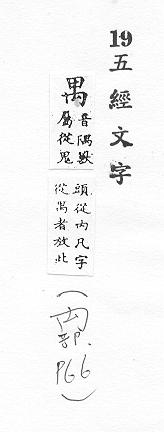 19五經文字
禺音隅獸屬從鬼
頭從禸凡字從禺者放此
(禸部. P66)